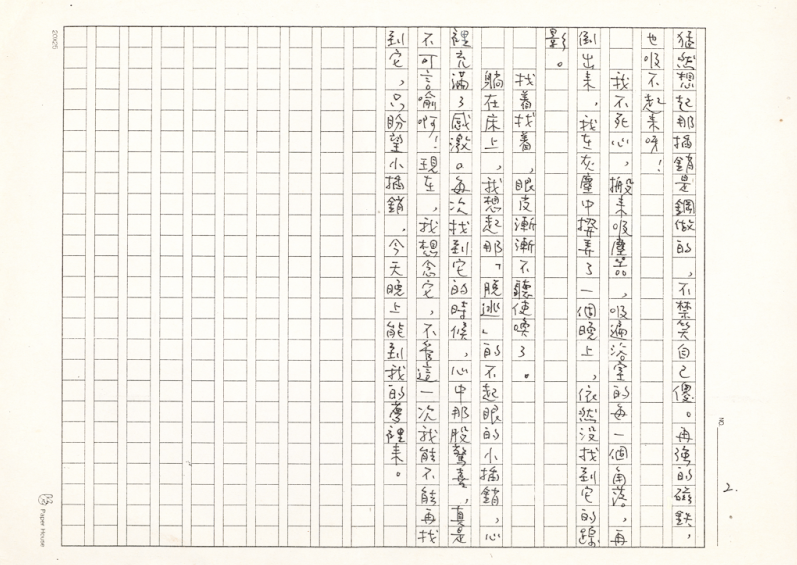 猛然想起那插銷是銅做的，不禁笑自己傻。再強的磁鉄，
也吸不起来呀！
我不死心，搬来吸塵器，吸遍浴室的每一個角落，再
倒出来，我在灰塵中撥弄了一個晚上，依然没找到它的踪
影。
找着找着，眼皮漸漸不聽使喚了。
躺在床上，我想起那「脱逃」的不起眼的小插銷，心
裡充滿了感激。每次找到它的時候，心中那股驚喜，真是
不可言喻啊！現在，我想念它，不管這一次我能不能再找
到它，只盼望小插銷，今天晚上能到我的夢裡来。
NO
2.
20×25
Paper House